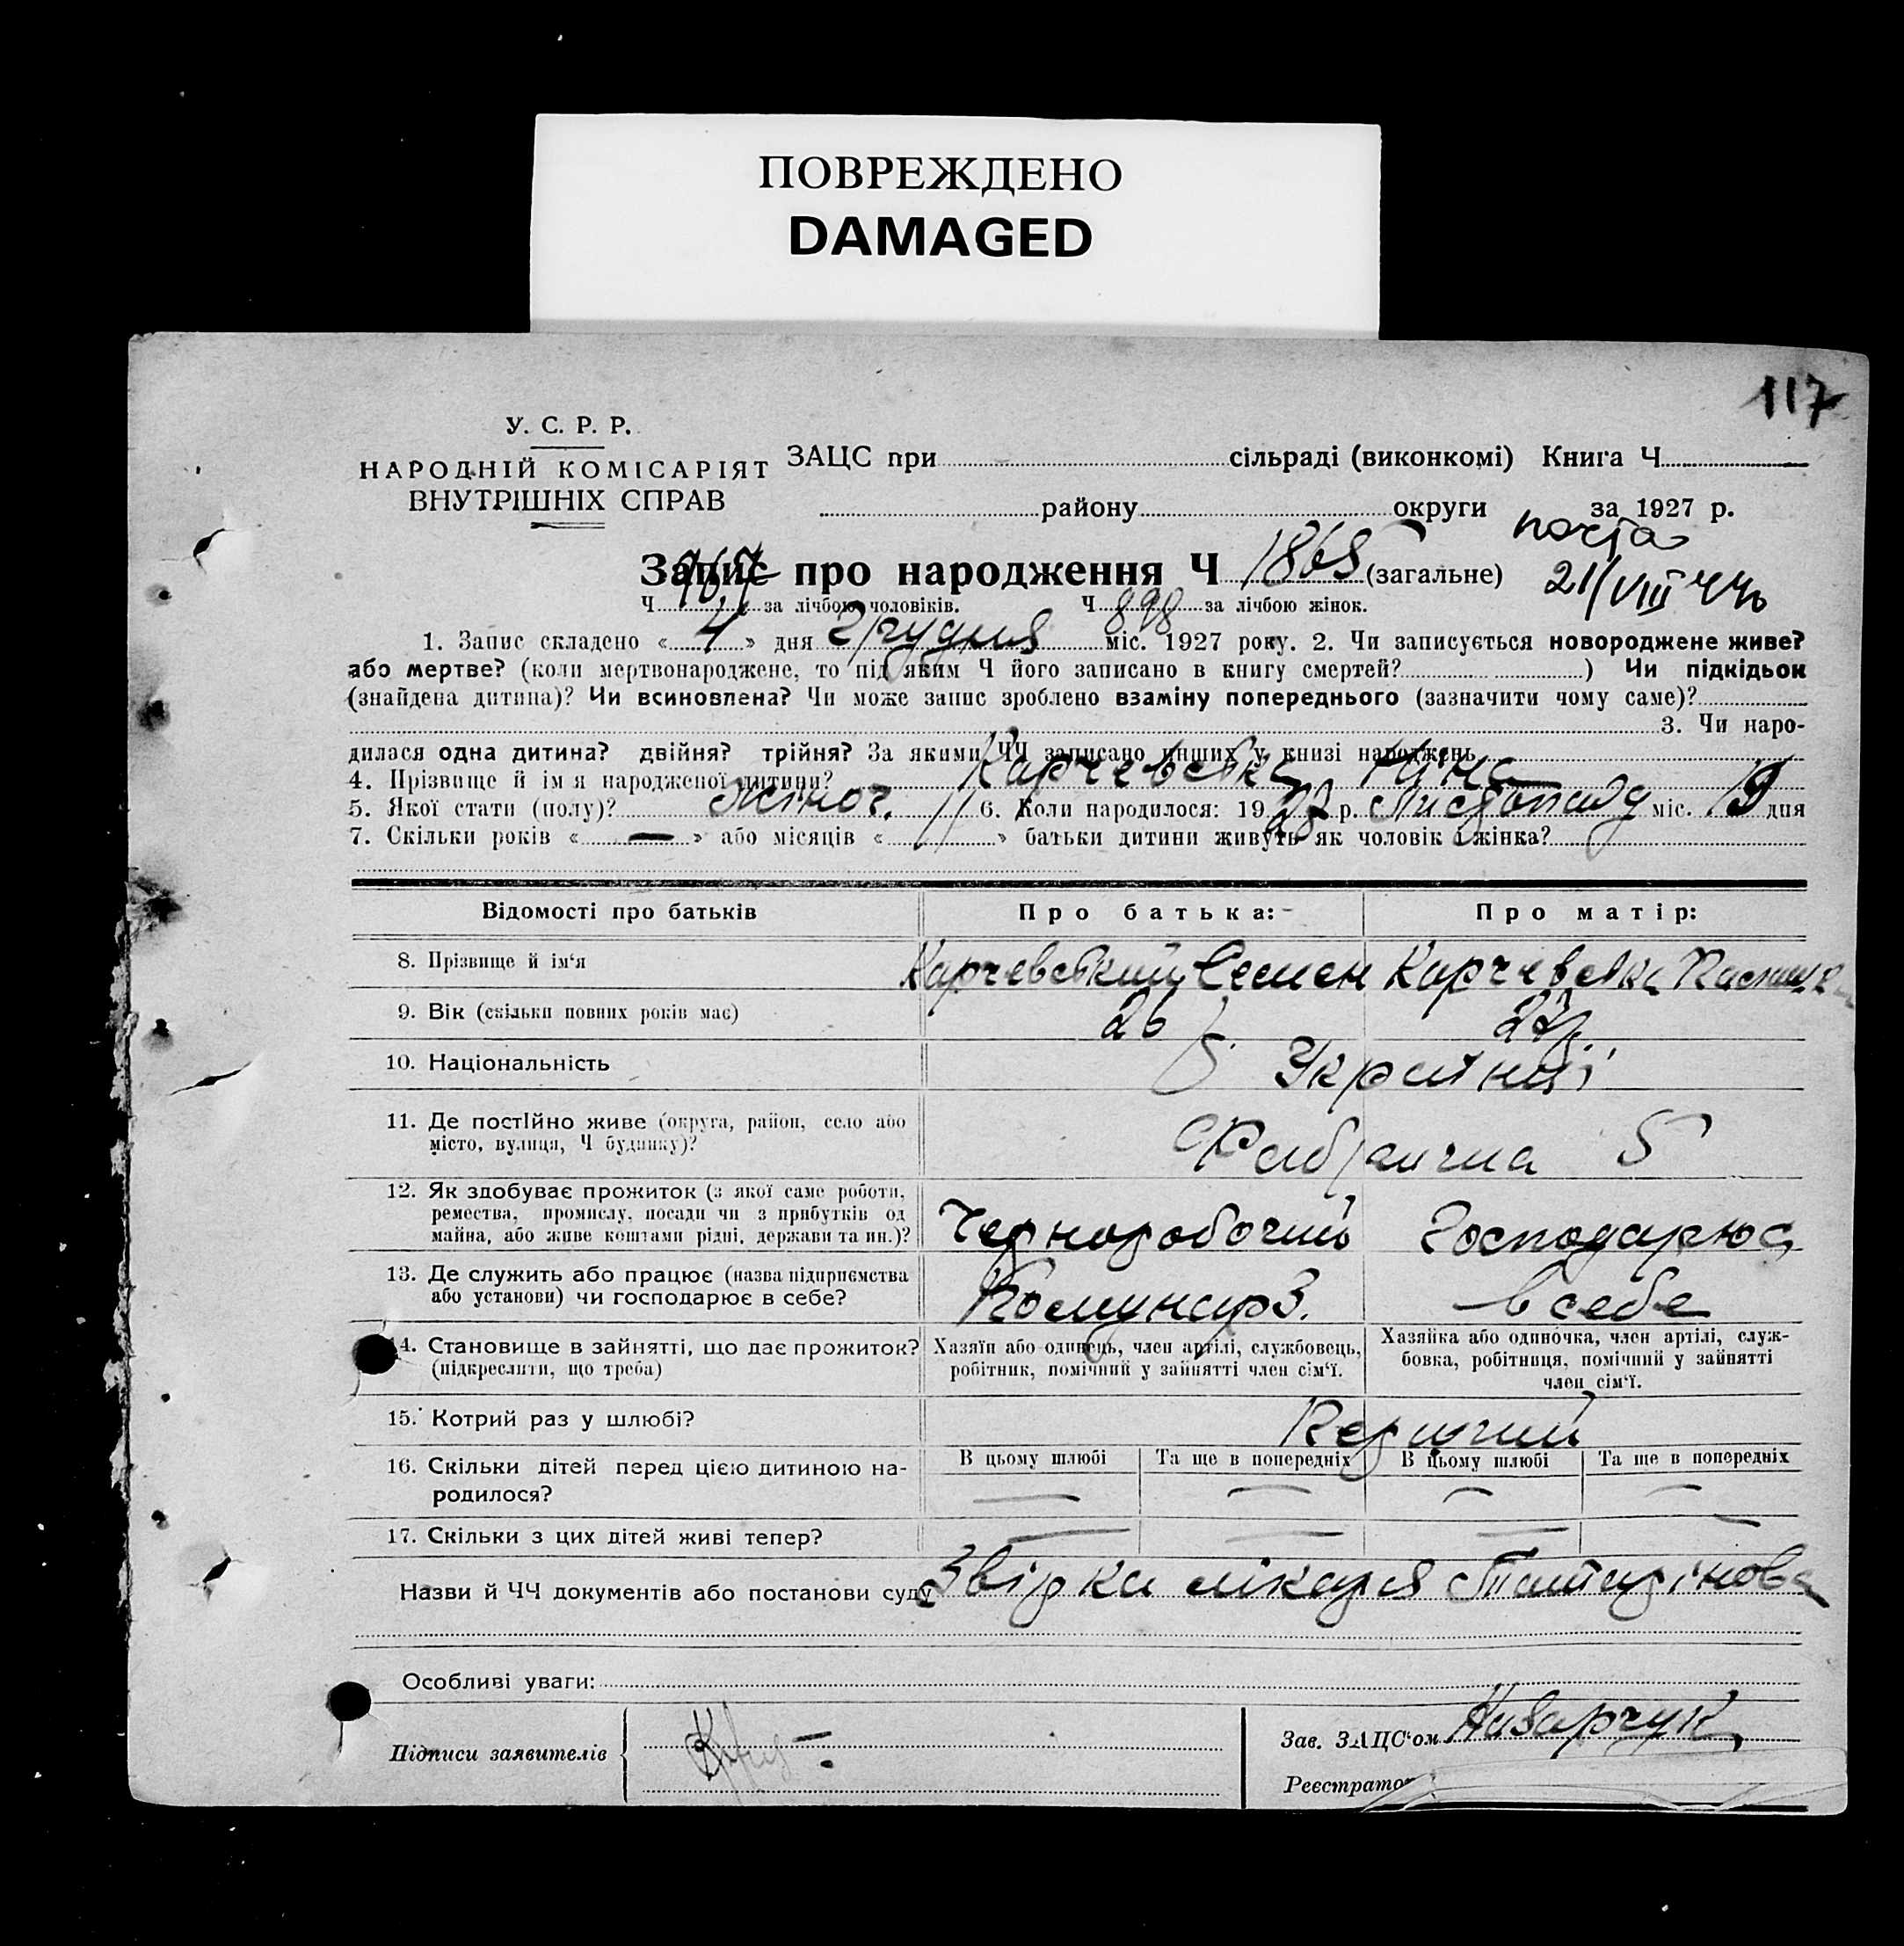 ПОВРЕЖДЕНО
DAMAGED
117
У. С. Р. Р.
НАРОДНІЙ КОМІСАРІЯТ
ВНУТРІШНІХ СПРАВ
ЗАЦС при сільраді (виконкомі) Книга Ч.
району округи за 1927 р.
почта
Запис про народження Ч 1868 (загальне) 21/VIII 44
Ч. за лічбою чоловіків. Ч. 898 за лічбою жінок.
1. Запис складено « 4 » дня Грудня міс. 1927 року. 2. Чи записується новороджене живе?
або мертве? (коли мертвонароджене, то під яким Ч його записано в книгу смертей? ) Чи підкідьок
(знайдена дитина)? Чи всиновлена? Чи може запис зроблено взаміну попереднього (зазначити чому саме)?
3. Чи наро-
дилася одна дитина? двійня? трійня? За якими ЧЧ записано инших у книзі народжень
4. Прізвище й ім я народженої дитини? Карчевська Ніна
5. Якої стати (полу)? жіноч. 6. Коли народилося: 1927 р. Листопаду міс. 19 дня
7. Скільки років « — » або місяців « » батьки дитини живуть як чоловік і жінка?
Відомості про батьків Про батька: Про матір:
8. Прізвище й ім‘я Карчевський Семен Карчевська
9. Вік (скільки повних років має) 26 22
10. Національність Українці
11. Де постійно живе (округа, район, село або
місто, вулиця, Ч будинку)? Фабрична 5
12. Як здобуває прожиток (з якої саме роботи,
ремества, промислу, посади чи з прибутків од
майна, або живе коштами рідні, держави та ин.)? Черноробочий Господарює
13. Де служить або працює (назва підприємства
або установи) чи господарює в себе? Комунар З. в себе
14. Становище в зайнятті, що дає прожиток?
(підкреслити, що треба)
Хазяїн або одинець, член артілі, службовець,
робітник, помічний у зайнятті член сім‘ї.
Хазяйка або одиночка, член артілі, служ-
бовка, робітниця, помічний у зайнятті
член сім‘ї.
15. Котрий раз у шлюбі? Перший
16. Скільки дітей перед цією дитиною на-
родилося?
В цьому шлюбі Та ще в попередніх В цьому шлюбі Та ще в попередніх
17. Скільки з цих дітей живі тепер?
Назви й ЧЧ документів або постанови суду лікаря
Особливі уваги:
Підписи заявителів
Зав. ЗАЦС‘ом Назарчук
Реєстратор